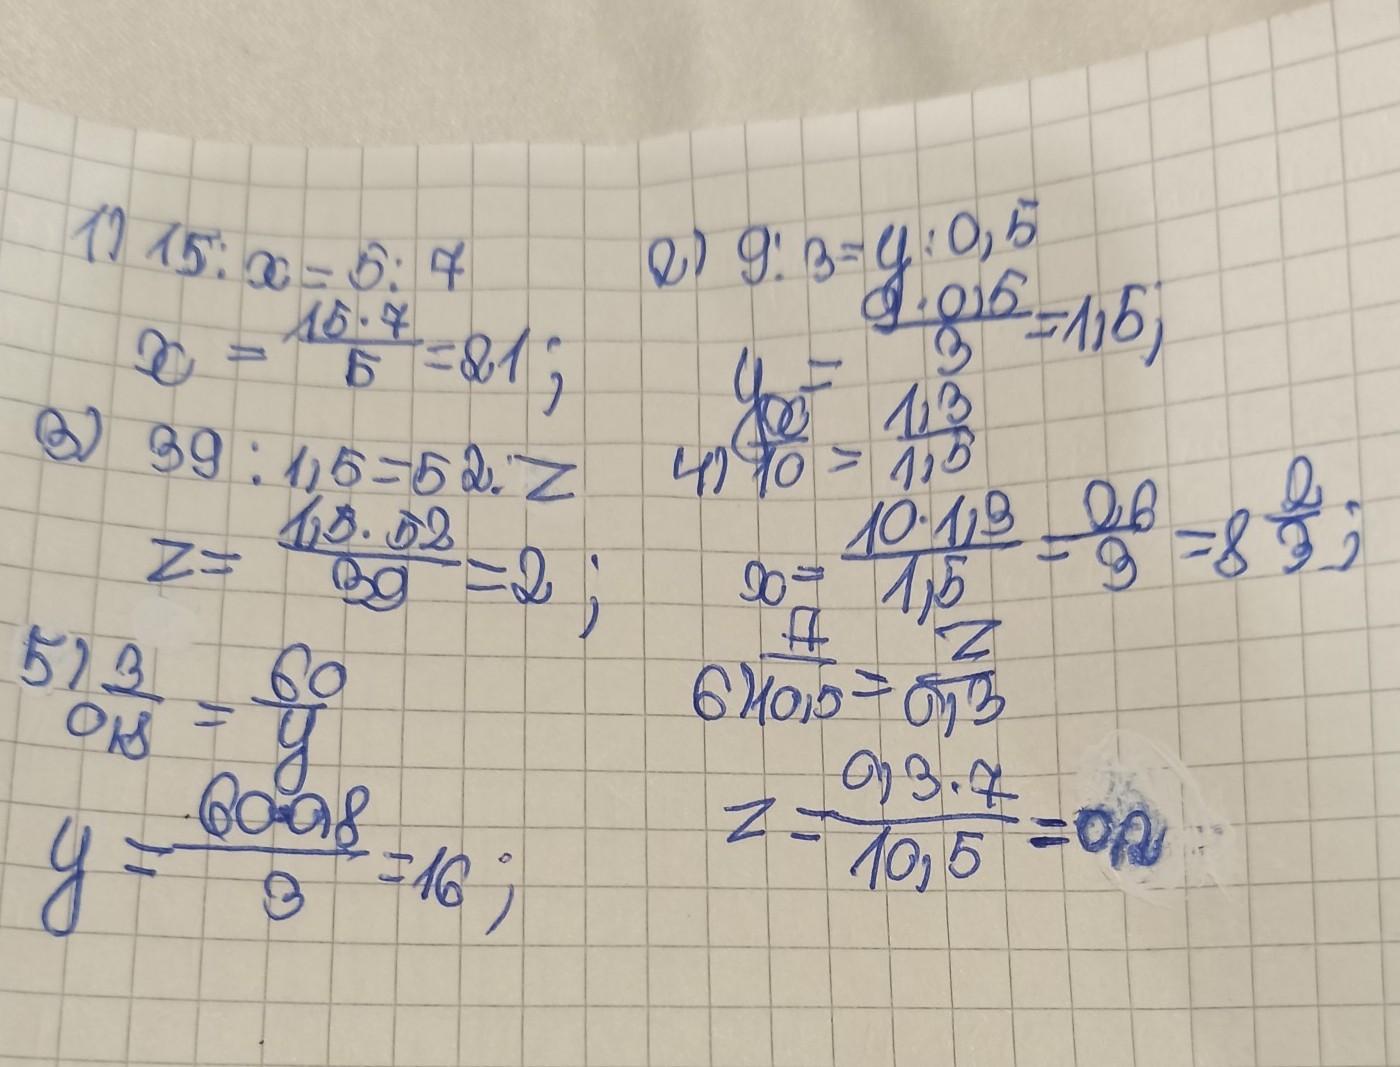 1) 15 : x = 5 : 7
x = 15 · 7 / 5 = 21;
2) 9 : 3 = y : 0,5
y = 9 · 0,5 / 3 = 1,5;
3) 39 : 1,5 = 52 : z
z = 1,5 · 52 / 39 = 2;
4) x / 10 = 1,3 / 1,5
x = 10 · 1,3 / 1,5 = 26 / 3 = 8 2/3;
5) 3 / 0,8 = 60 / y
y = 60 · 0,8 / 3 = 16;
6) 7 / 10,5 = z / 0,3
z = 0,3 · 7 / 10,5 = 0,2